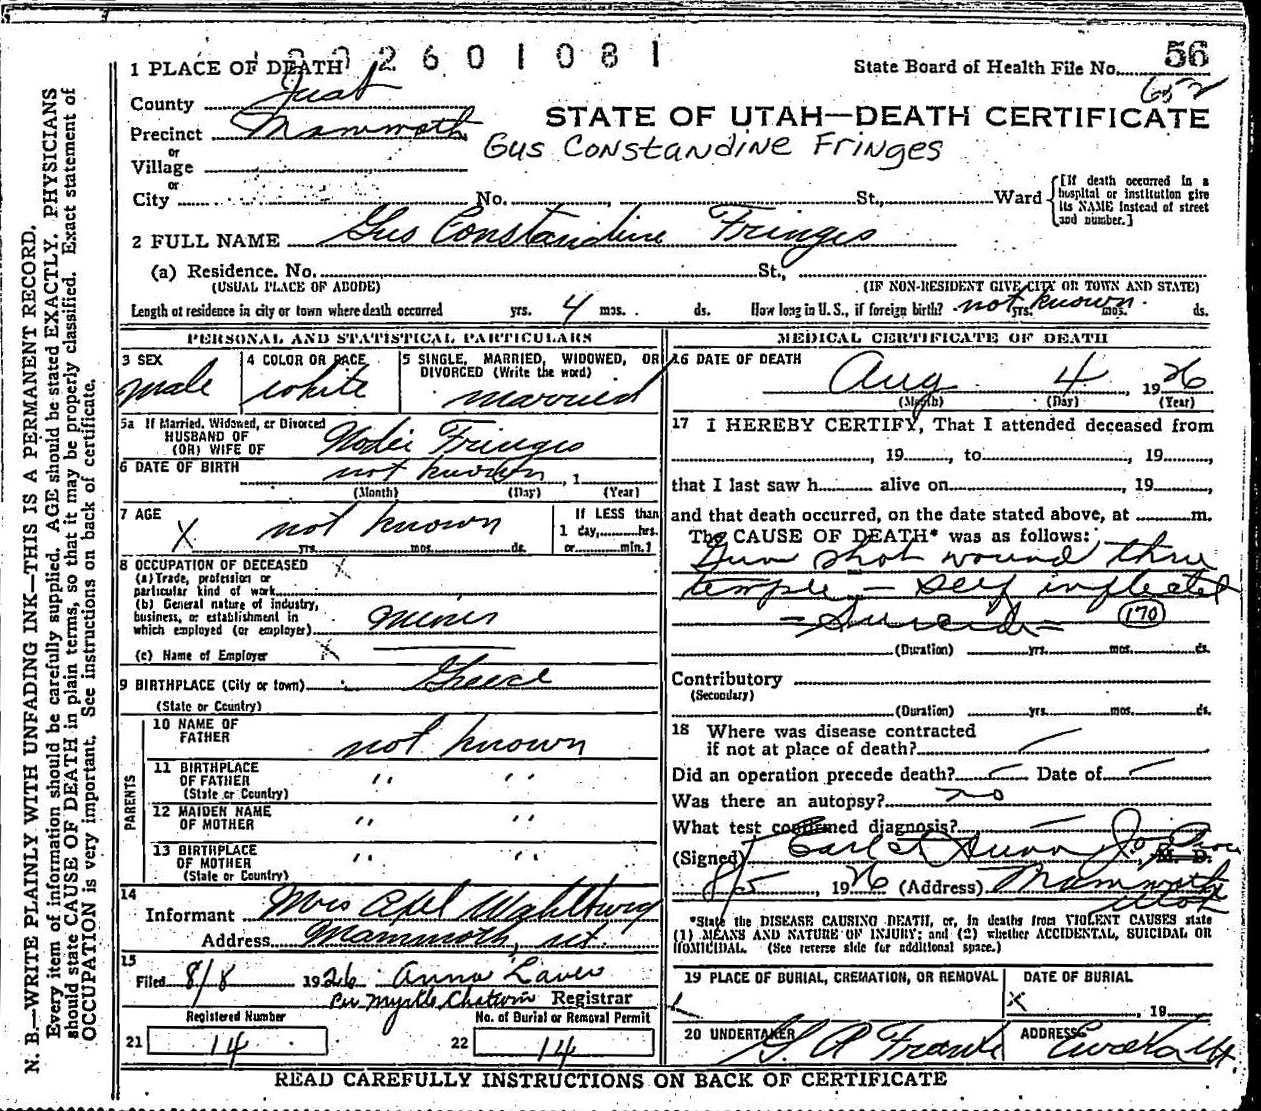 2 6 0 1 0 8 1
56
1 PLACE OF DEATH
State Board of Health File No.
652
County Juab
STATE OF UTAH—DEATH CERTIFICATE
Precinct Mammoth
or
Gus Constandine Fringes
Village
or
City No. , St., Ward
[If death occurred in a hospital or institution give its NAME instead of street and number.]
2 FULL NAME Gus Constandine Fringes
(a) Residence. No. St.,
(USUAL PLACE OF ABODE) (IF NON-RESIDENT GIVE CITY OR TOWN AND STATE)
Length of residence in city or town where death occurred yrs. 4 mos. ds. How long in U.S., if foreign birth? not known yrs. mos. ds.
PERSONAL AND STATISTICAL PARTICULARS
3 SEX
male
4 COLOR OR RACE
white
5 SINGLE, MARRIED, WIDOWED, OR
DIVORCED (Write the word)
married
5a If Married, Widowed, or Divorced
HUSBAND OF
(OR) WIFE OF Fringes
6 DATE OF BIRTH not known , 1
(Month) (Day) (Year)
7 AGE
X not known
yrs. mos. ds.
If LESS than
1 day, hrs.
or min.?
8 OCCUPATION OF DECEASED
(a) Trade, profession or
particular kind of work
(b) General nature of industry,
business, or establishment in
which employed (or employer) miner
(c) Name of Employer
9 BIRTHPLACE (City or town) Greece
(State or Country)
PARENTS
10 NAME OF
FATHER not known
11 BIRTHPLACE
OF FATHER " "
(State or Country)
12 MAIDEN NAME
OF MOTHER " "
13 BIRTHPLACE
OF MOTHER " "
(State or Country)
14
Informant Mrs Axel
Address Mammoth, ut.
15
Filed 8/8 1926 Anna Laver
Per Myrtle Chatwin Registrar
Registered Number
21 14
No. of Burial or Removal Permit
22 14
MEDICAL CERTIFICATE OF DEATH
16 DATE OF DEATH
Aug 4 , 1926
(Month) (Day) (Year)
17 I HEREBY CERTIFY, That I attended deceased from
, 19 , to , 19 ,
that I last saw h alive on , 19 ,
and that death occurred, on the date stated above, at m.
The CAUSE OF DEATH* was as follows:
Gun shot wound thru
temple — Self inflected
= Suicide = 170
(Duration) yrs. mos. ds.
Contributory
(Secondary)
(Duration) yrs. mos. ds.
18 Where was disease contracted
if not at place of death?
Did an operation precede death? Date of
Was there an autopsy? no
What test confirmed diagnosis?
(Signed) Earl M. D.
8/5 , 1926 (Address) Mammoth
Utah
*State the DISEASE CAUSING DEATH, or, in deaths from VIOLENT CAUSES state
(1) MEANS AND NATURE OF INJURY; and (2) whether ACCIDENTAL, SUICIDAL OR
HOMICIDAL. (See reverse side for additional space.)
19 PLACE OF BURIAL, CREMATION, OR REMOVAL
DATE OF BURIAL
X , 19
20 UNDERTAKER
ADDRESS
READ CAREFULLY INSTRUCTIONS ON BACK OF CERTIFICATE
N. B.—WRITE PLAINLY WITH UNFADING INK—THIS IS A PERMANENT RECORD.
Every item of information should be carefully supplied. AGE should be stated EXACTLY. PHYSICIANS
should state CAUSE OF DEATH in plain terms, so that it may be properly classified. Exact statement of
OCCUPATION is very important. See instructions on back of certificate.